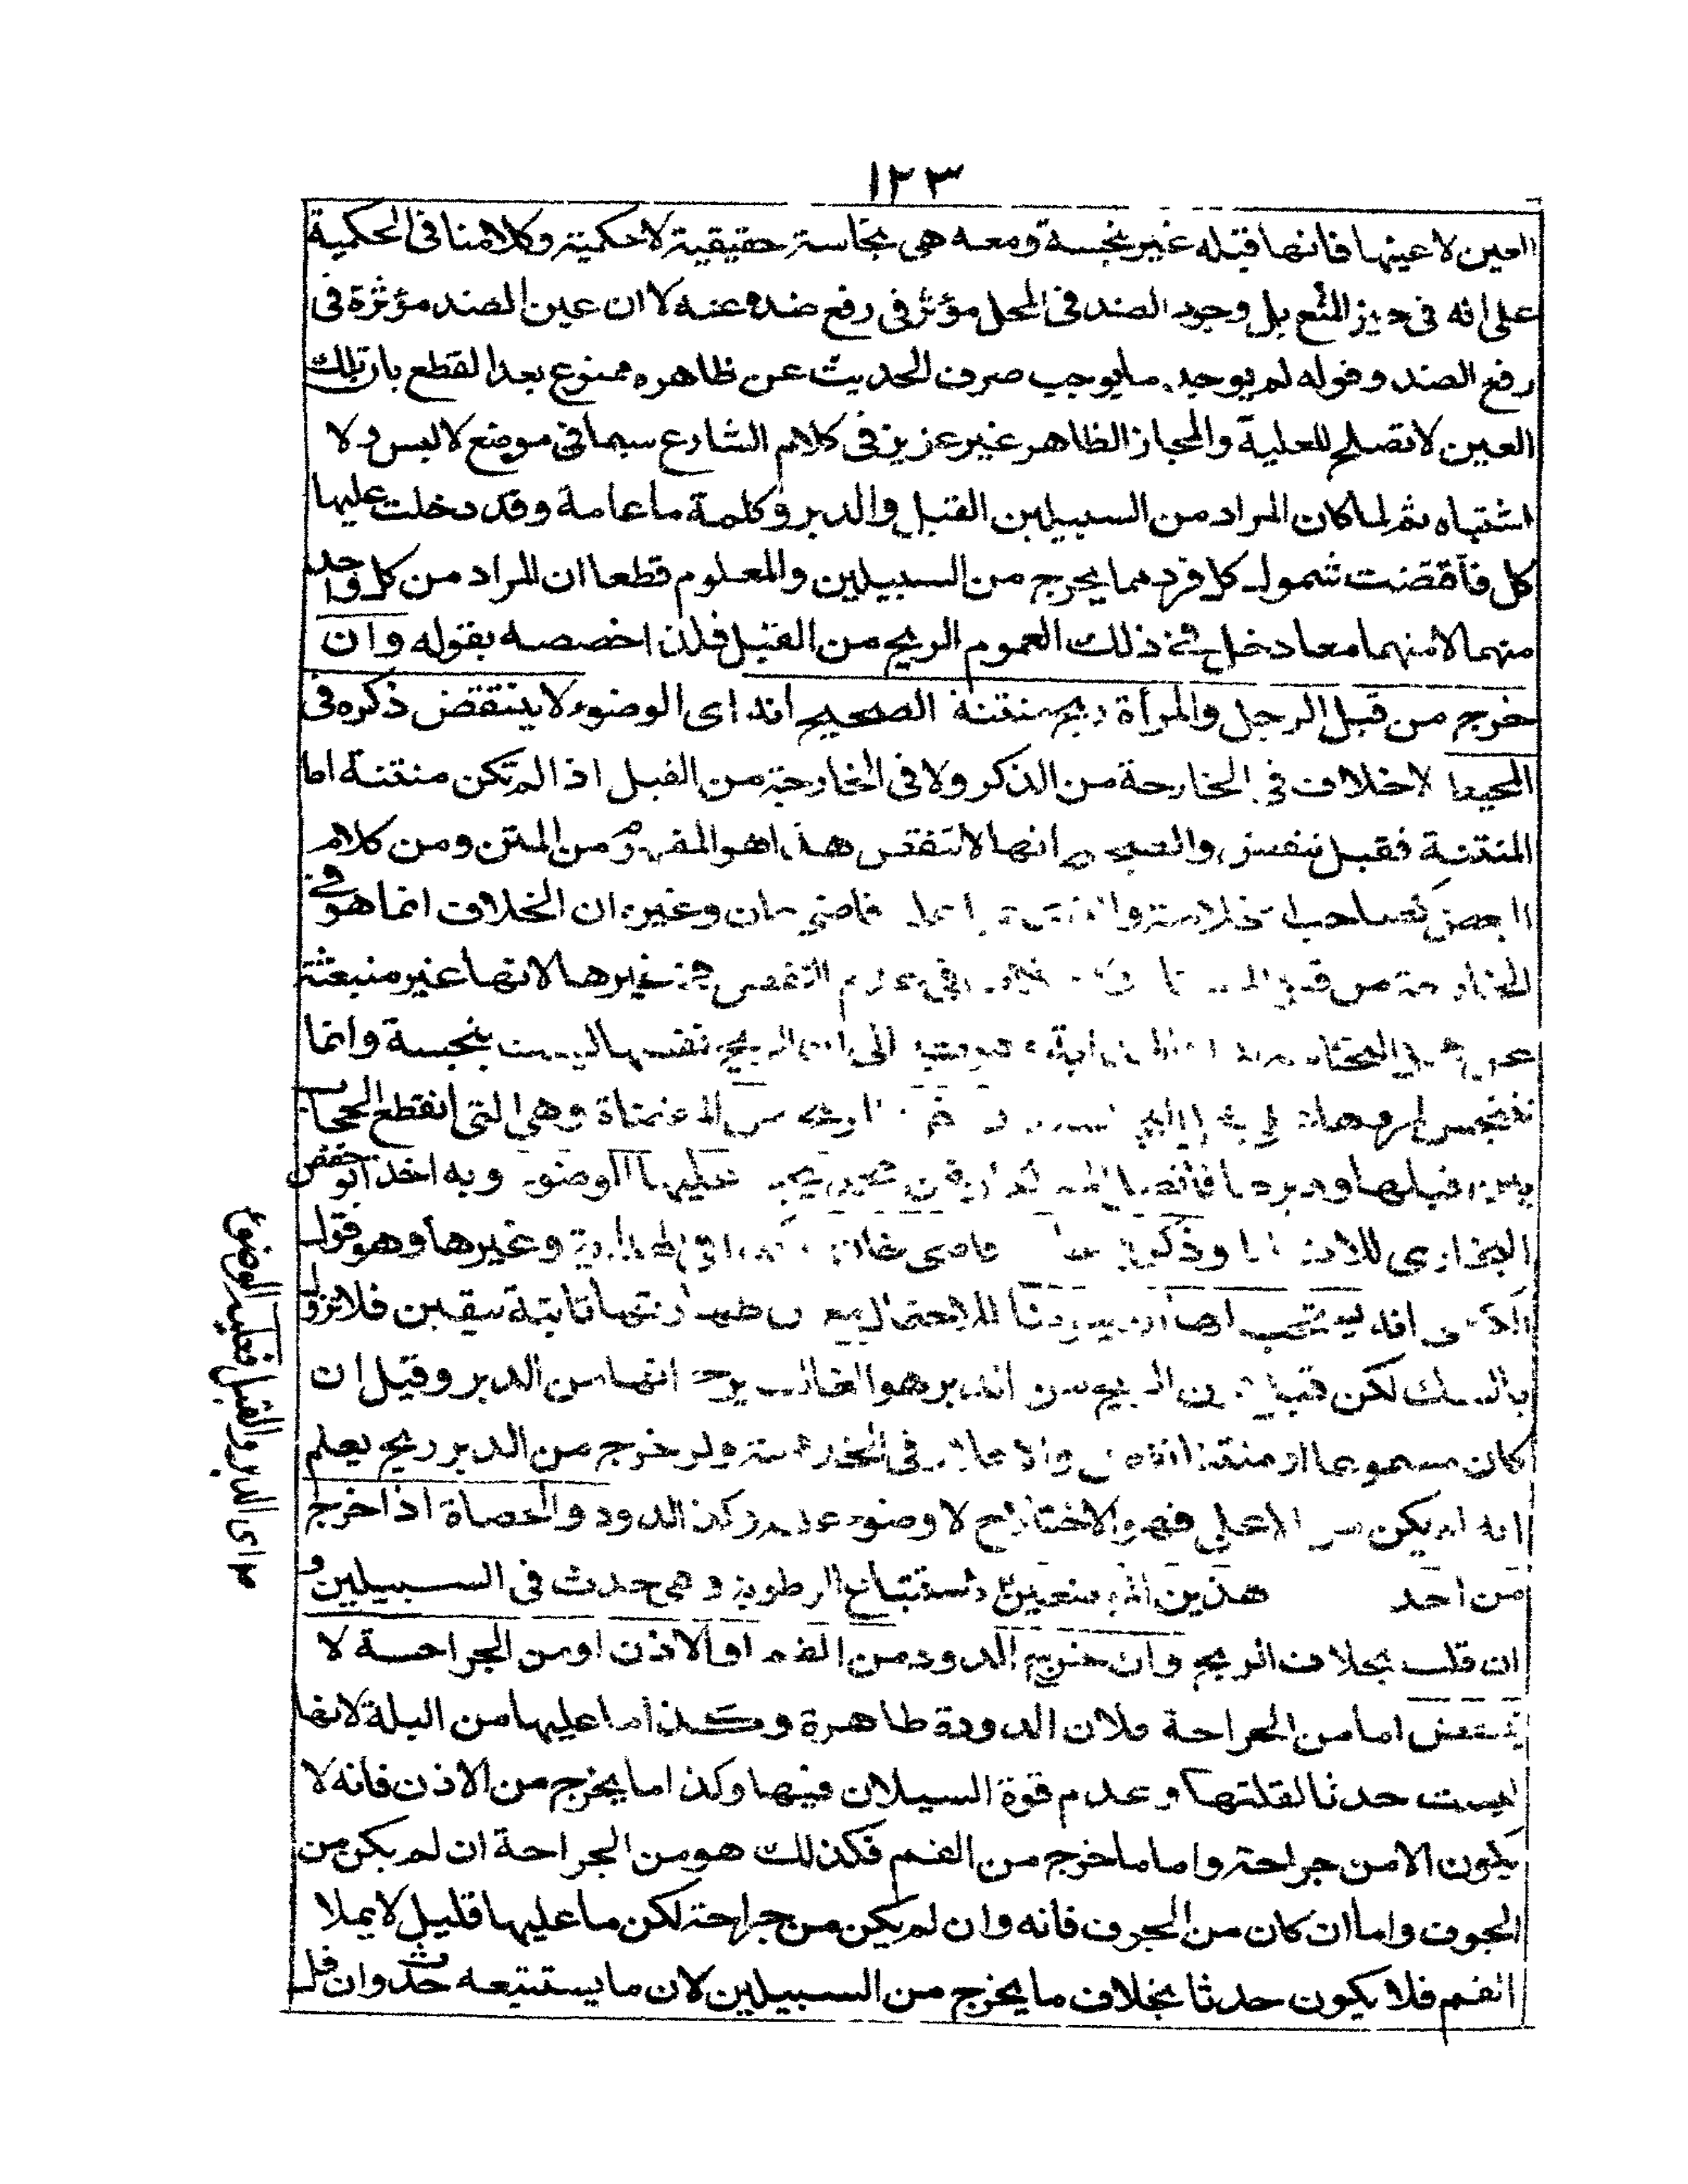 ١٢٣
العين لا عينها فانها قبله غير نجسة ومعه هى نجاسة حقيقية لا حكمية وكلامنا فى الحكمية
على انه فى حيز المنع بل وجود الضد فى المحل مؤثر فى رفع ضده عنه لا ان عين الضد مؤثرة فى
رفع الضد وقوله لم يوجد ما يوجب صرف الحديث عن ظاهره ممنوع بعد القطع بان تلك
العين لا تصلح للعلية والمجاز الظاهر غير عزيز فى كلام الشارع سيما فى موضع لا لبس ولا
اشتباه ثم لما كان المراد من السبيلين القبل والدبر وكلمة ما عامة وقد دخلت عليها
كل فاقتضت شمول كل فرد مما يخرج من السبيلين والمعلوم قطعا ان المراد من كل واحد
منهما لا منهما معا دخل فى ذلك العموم الريح من القبل فلذا خصصه بقوله وان
خرج من قبل الرجل والمرأة ريح منتنة الصحيح انه اى الوضوء لا ينتقض ذكره فى
المحيط لا خلاف فى الخارجة من الذكر ولا فى الخارجة من القبل اذا لم تكن منتنة اما
المنتنة فقيل تنقض والصحيح انها لا تنقض هذا هو المفهوم من المتن ومن كلام
البعض كصاحب الخلاصة قاضى خان وغيره ان الخلاف انما هو فى
الخارجة من قبل فى عدم النقض فى غيرها لانها غير منبعثة
عن محل النجاسة الى ان الريح نفسها ليست بنجسة وانما
تتنجس لمرورها وهى التى انقطع الحجاب
بين قبلها ودبرها عن محمد يجب عليها الوضوء وبه اخذ ابو حفص
البخارى للاحتياط وذكر قاضى خان الهداية وغيرها وهو قول
انه يستحب لها ان تتوضأ للاحتمال طهارتها ثابتة بيقين فلا تزول
بالشك لكن قيل كون الريح من الدبر هو الغالب يرجح انها من الدبر وقيل ان
كان مسموعا او منتنا انتقض والا فلا فى الخلاصة ولو خرج من الدبر ريح يعلم
انه لم يكن من الاعلى فهو الاختلاج لا وضوء عليه وكذا الدود والحصاة اذا خرج
من احد هذين الموضعين لاستتباع الرطوبة وهى حدث فى السبيلين و
ان قلت بخلاف الريح وان خرج الدود من الفم او الاذن او من الجراحة لا
ينتقض اما من الجراحة فلان الدودة طاهرة وكذا ما عليها من البلة لانها
ليست حدثا لقلتها وعدم قوة السيلان فيها وكذا ما يخرج من الاذن فانه لا
يكون الا من جراحة واما ما خرج من الفم فكذلك هو من الجراحة ان لم يكن من
الجوف واما ان كان من الجوف فانه وان لم يكن من جراحة لكن ما عليها قليل لا يملا
الفم فلا يكون حدثا بخلاف ما يخرج من السبيلين لان ما يستتبعه حدث وان قل
اى الدبر والقبل فعليه الوضوء